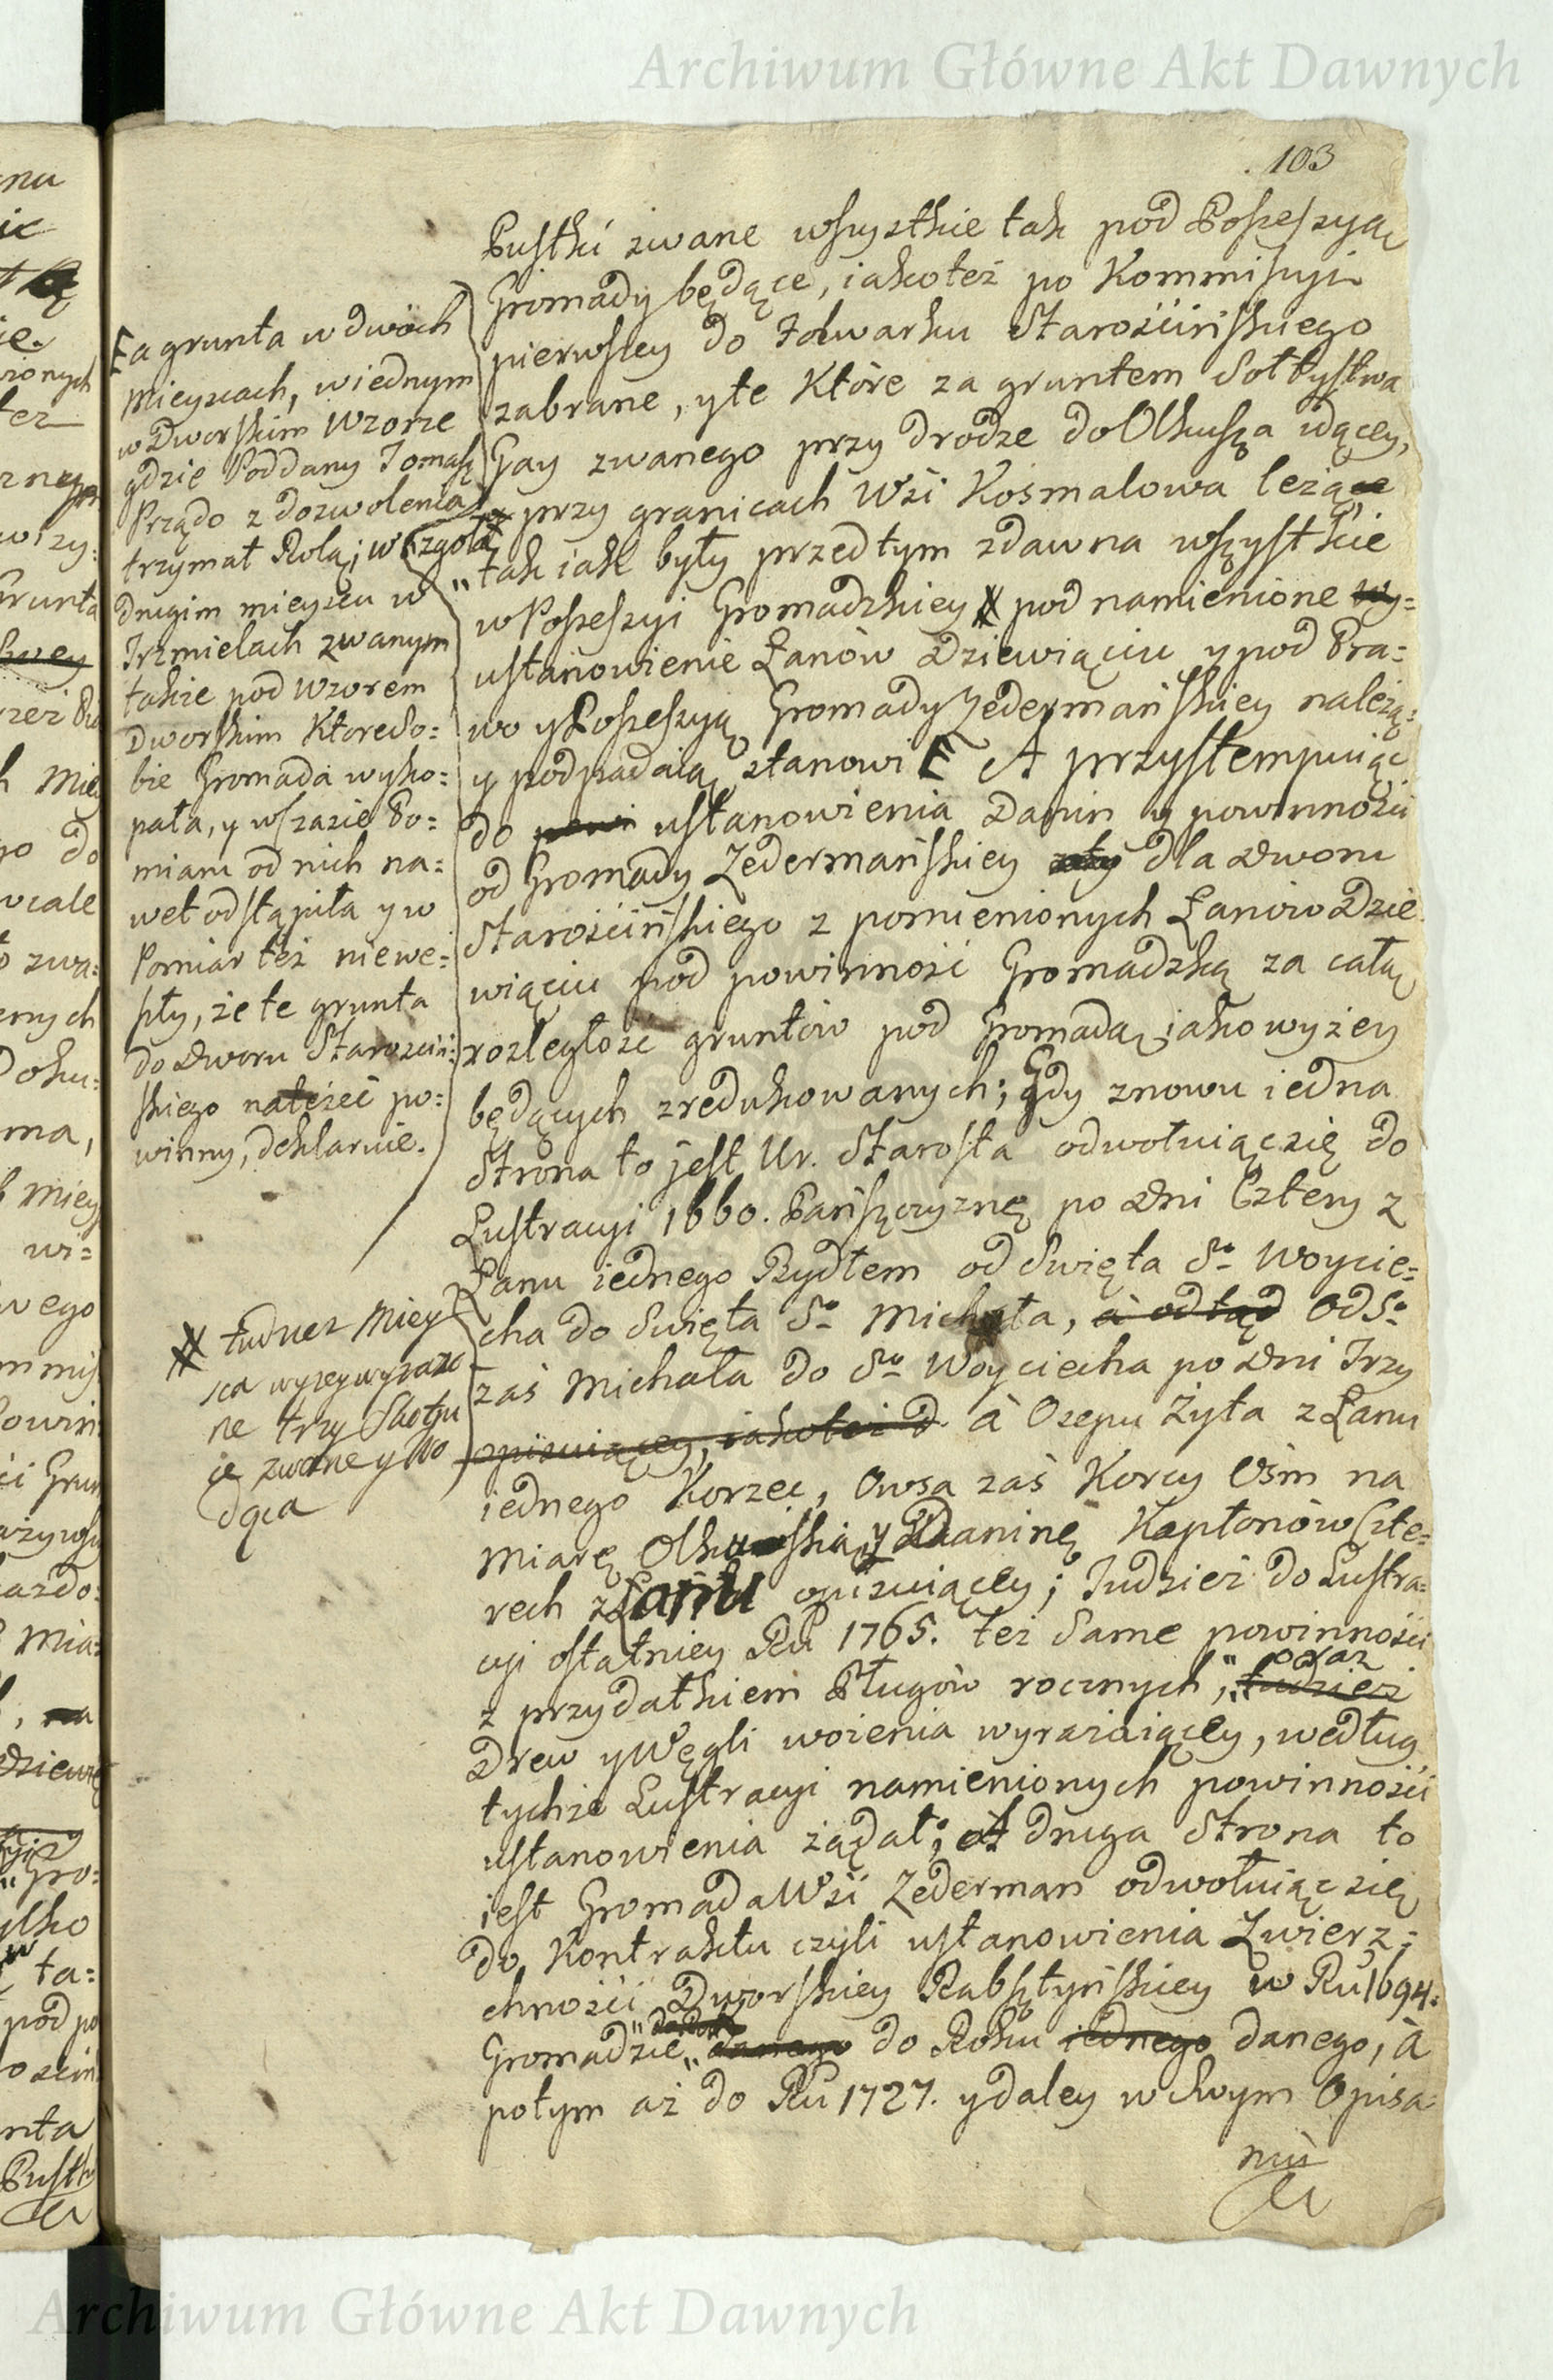 Archiwum Główne Akt Dawnych
103
Pustki zwane wszystkie tak pod Possessyą
Gromady będące, iakoteż po Kommissyi
pierwszey do Folwarku Starościńskiego
zabrane, yte Które za gruntem Sołtystwa
Gay zwanego przy drodze do Olkusza idącey,
y przy granicach Wsi Kosmalowa leżące
"tak iak były przedtym zdawna wszystkie
w Possessyi Gromadzkiey # pod namienione wy=
ustanowienie Łanów Dziewiąciu y pod Pra=
wo y Possessyą Gromady Zedermańskiey należą:
y podpadaią stanowi E A przystempuiąc
do ustanowienia Danin y powinności
od Gromady Zedermańskiey dla Dworu
Starościńskiego z pomienionych Łanów Dzie
wiąciu pod powinność Gromadzką za całą
rozległość gruntów pod Gromadą iakowyżey
będących zredukowanych; Gdy znowu iedna
Strona to jest Ur. Starosta odwołuiąc się do
Lustracyi 1660. Pańszczyznę po Dni Cztery z
Łanu iednego Bydłem od Swięta S° Woycie=
cha do Swięta S° Michała, a odtąd Od S°
zaś Michała do S° Woyciecha po Dni Trzy
opisuiącey, iakoteż D. à Osepu Żyta z Łanu
iednego Korzec, Owsa zaś Korcy Ośm na
Miarę Olkuską y Daninę Kapłonów Czte=
rech z Łanu opisuiącey; Tudzież do Lustra=
cyi ostatniey Ru 1765. też Same powinności
z przydatkiem Pługów rocznych, "oraz tudzież
Drew y Węgli wożenia wyrażaiącey, według
tychże Lustracyi namienionych powinności
ustanowienia żądał; A druga Strona to
iest Gromada Wsi Zederman odwołuiąc się
do Kontraktu czyli ustanowienia Zwierz=
chności Dworskiey Rabsztyńskiey w Ru 1694.
Gromadzie " danego do Roku iednego danego, à
potym aż do Ru 1727. y daley w Swym Opisa
niu
E a grunta w dwóch
Mieyscach, w iednym
w Dworskim Wzorze
gdzie Poddany Tomasz
Prządo z dozwolenia
trzymał Rolą; w zgoła
drugim mieyscu w
Trzmielach zwanym
także pod Wzorem
Dworskim Które So=
bie Gromada wyko=
pała, y w czasie Po=
miaru od nich na=
wet odstąpiła y w
Pomiar też niewe=
szły, że te grunta
do Dworu Starościń:
skiego należeć po=
winny, deklaruie.
# tudzież Miey
sca wyżey wyrażo
ne trzy
ce zwane y Wo
dąca
Archiwum Główne Akt Dawnych